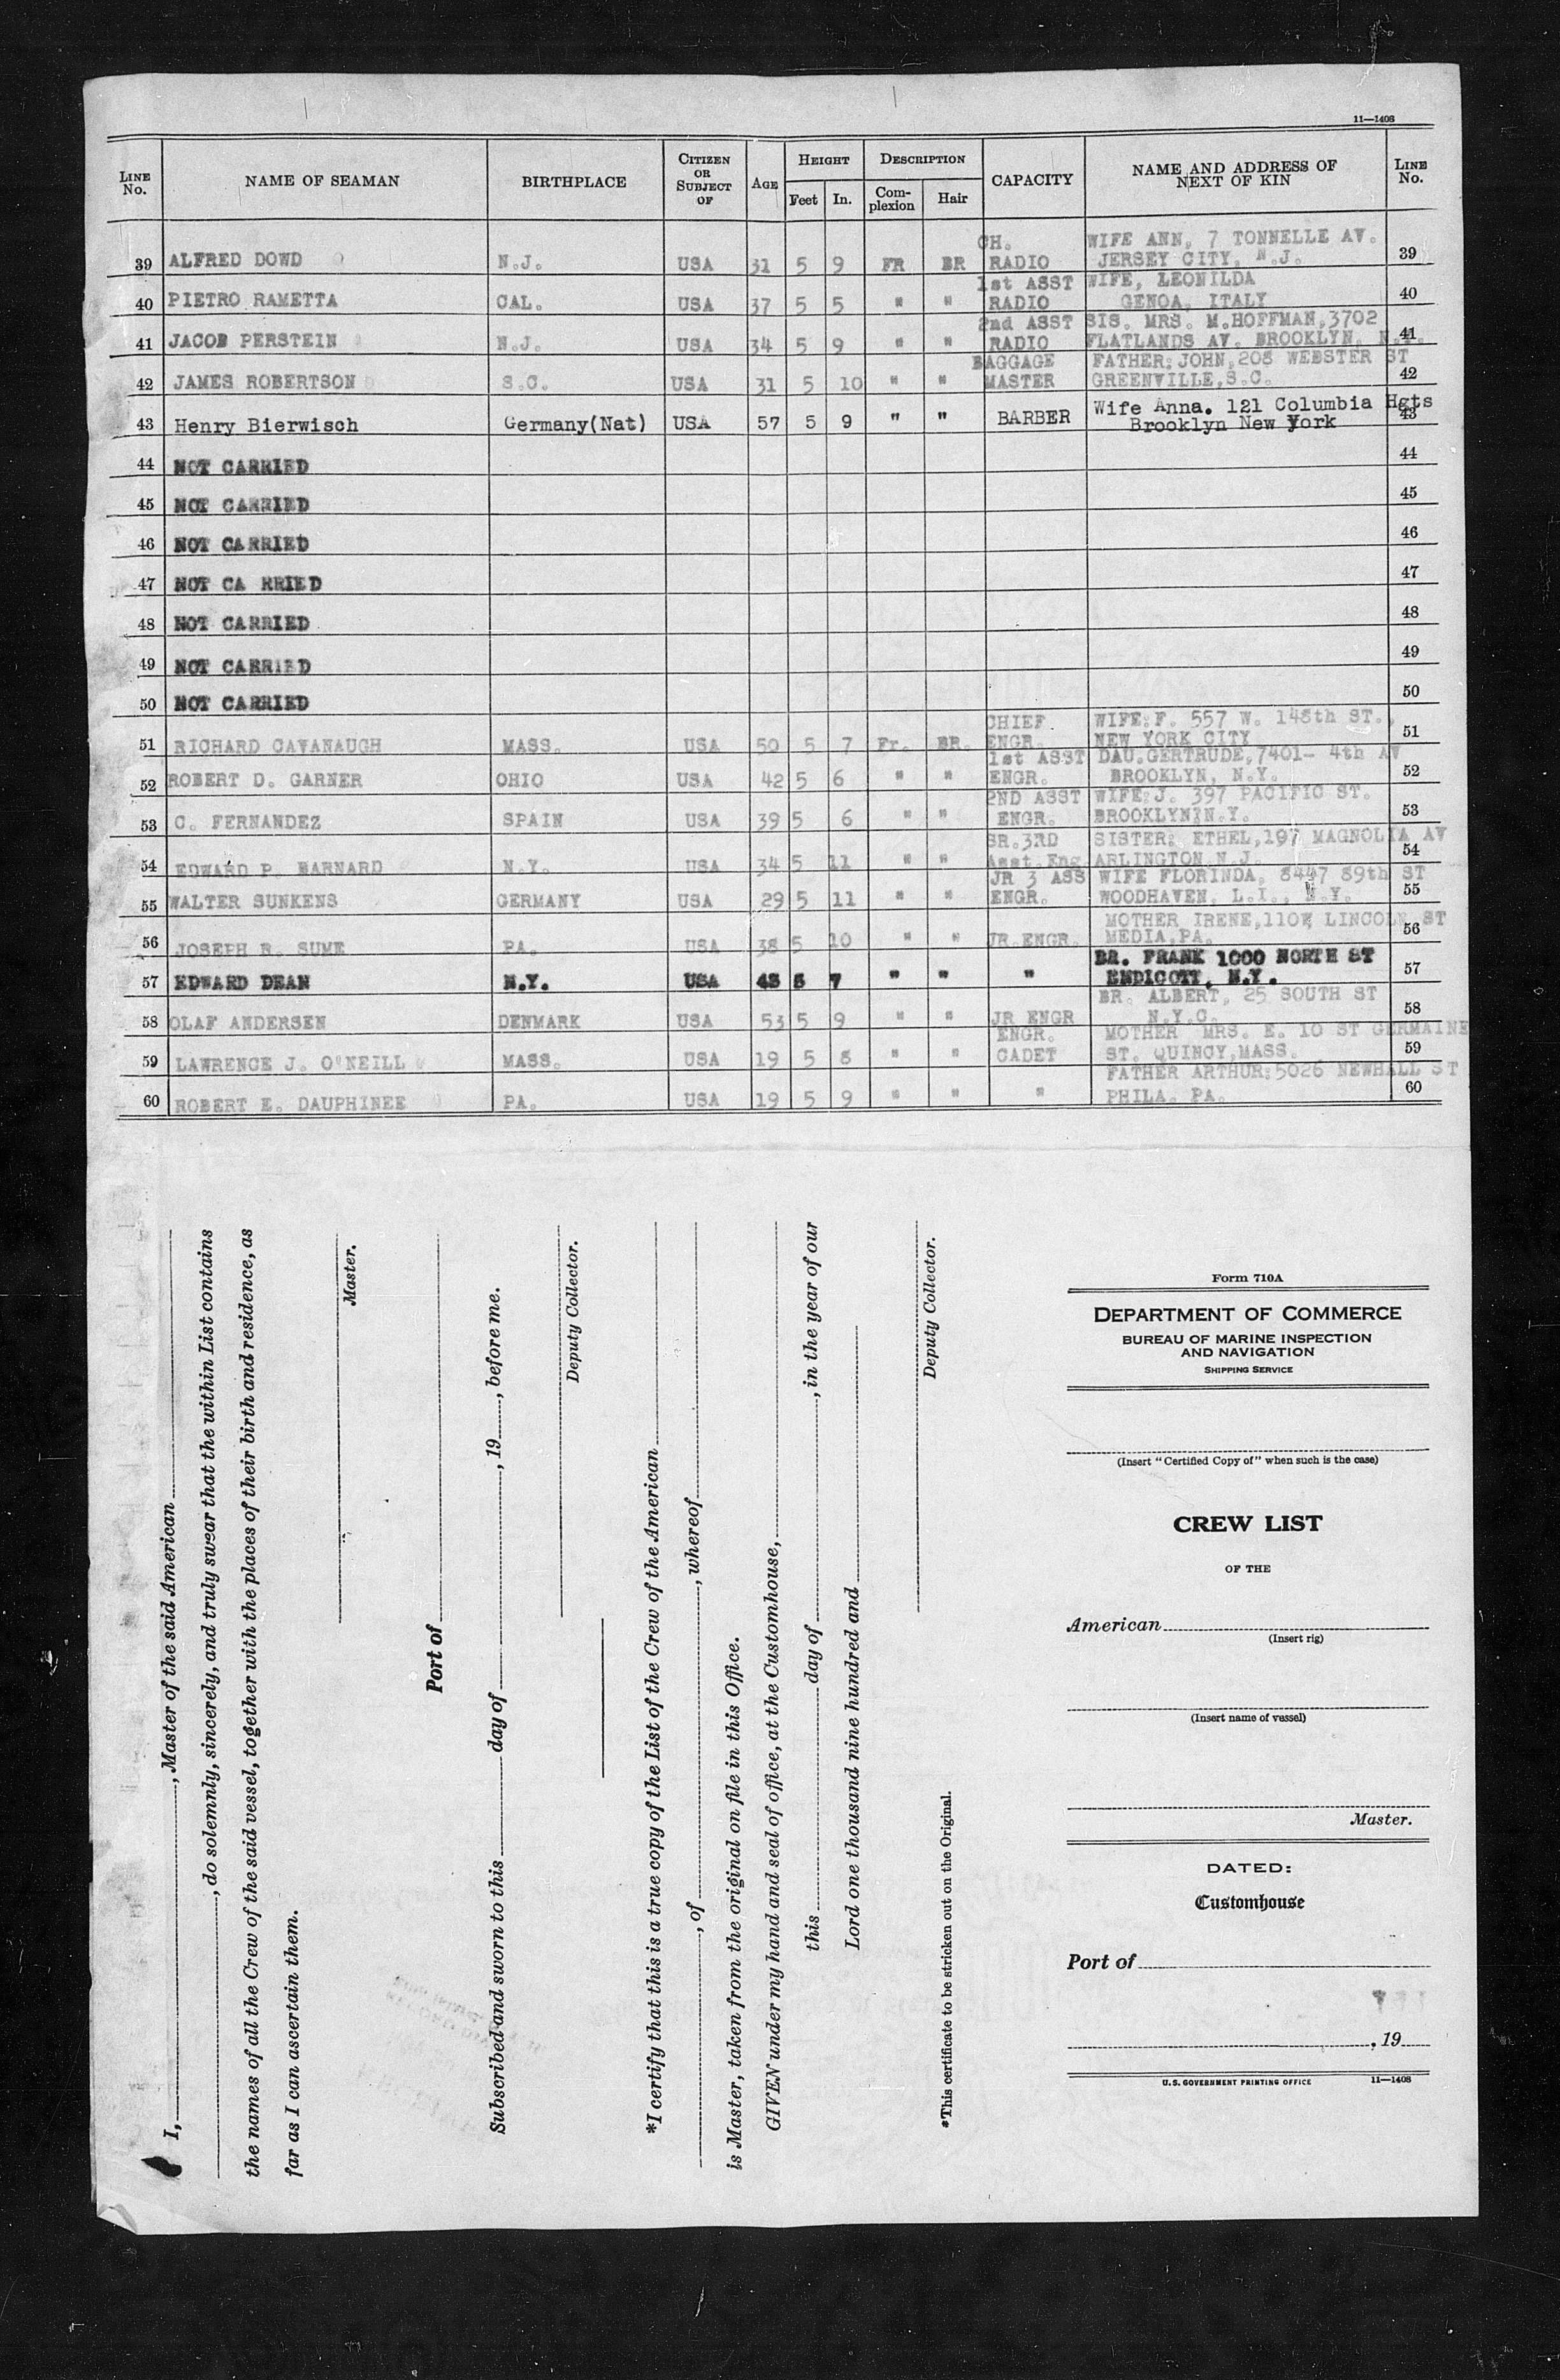 11—1408
LINE No. NAME OF SEAMAN BIRTHPLACE CITIZEN OR SUBJECT OF AGE HEIGHT Feet In. DESCRIPTION Complexion Hair CAPACITY NAME AND ADDRESS OF NEXT OF KIN LINE No.
CH. WIFE ANN, 7 TONNELLE AV.
39 ALFRED DOWD N.J. USA 31 5 9 FR BR RADIO JERSEY CITY, N.J. 39
1st ASST WIFE, LEONILDA
40 PIETRO RAMETTA CAL. USA 37 5 5 " " RADIO GENOA, ITALY 40
2nd ASST SIS. MRS. M.HOFFMAN,3702
41 JACOB PERSTEIN N.J. USA 34 5 9 " " RADIO FLATLANDS AV. BROOKLYN, N.Y. 41
BAGGAGE FATHER:JOHN,208 WEBSTER ST
42 JAMES ROBERTSON S.C. USA 31 5 10 " " MASTER GREENVILLE,S.C. 42
Wife Anna. 121 Columbia Hgts
43 Henry Bierwisch Germany(Nat) USA 57 5 9 " " BARBER Brooklyn New York 43
44 NOT CARRIED 44
45 NOT CARRIED 45
46 NOT CARRIED 46
47 NOT CA RRIED 47
48 NOT CARRIED 48
49 NOT CARRIED 49
50 NOT CARRIED 50
CHIEF WIFE:F. 557 W. 148th ST.,
51 RICHARD CAVANAUGH MASS. USA 50 5 7 Fr. BR. ENGR. NEW YORK CITY 51
1st ASST DAU.GERTRUDE,7401- 4th AV
52 ROBERT D. GARNER OHIO USA 42 5 6 " " ENGR. BROOKLYN, N.Y. 52
2ND ASST WIFE:J. 397 PACIFIC ST.
53 C. FERNANDEZ SPAIN USA 39 5 6 " " ENGR. BROOKLYN N.Y. 53
SR.3RD SISTER: ETHEL,197 MAGNOLIA AV
54 EDWARD P. BARNARD N.Y. USA 34 5 11 " " Asst.Eng ARLINGTON N.J. 54
JR 3 ASS WIFE FLORINDA, 8447 89th ST
55 WALTER SUNKENS GERMANY USA 29 5 11 " " ENGR. WOODHAVEN, L.I., N.Y. 55
MOTHER IRENE,1107 LINCOLN ST
56 JOSEPH R. SUME PA. USA 38 5 10 " " JR.ENGR. MEDIA,PA. 56
BR. FRANK 1000 NORTH ST
57 EDWARD DEAN N.Y. USA 5 7 " " " ENDICOTT, N.Y. 57
BR. ALBERT, 25 SOUTH ST
58 OLAF ANDERSEN DENMARK USA 53 5 9 " " JR ENGR N.Y.C. 58
ENGR. MOTHER MRS. E. 10 ST GERMAINE
59 LAWRENCE J. O'NEILL MASS. USA 19 5 8 " " CADET ST. QUINCY,MASS. 59
FATHER ARTHUR:5026 NEWHALL ST
60 ROBERT E. DAUPHINEE PA. USA 19 5 9 " " " PHILA. PA. 60
I, , Master of the said American
, do solemnly, sincerely, and truly swear that the within List contains
the names of all the Crew of the said vessel, together with the places of their birth and residence, as
far as I can ascertain them.
Master.
Port of
Subscribed and sworn to this day of , 19 , before me.
Deputy Collector.
*I certify that this is a true copy of the List of the Crew of the American
, of , whereof
is Master, taken from the original on file in this Office.
GIVEN under my hand and seal of office, at the Customhouse,
this day of , in the year of our
Lord one thousand nine hundred and
Deputy Collector.
*This certificate to be stricken out on the Original.
Form 710A
DEPARTMENT OF COMMERCE
BUREAU OF MARINE INSPECTION
AND NAVIGATION
SHIPPING SERVICE
(Insert "Certified Copy of" when such is the case)
CREW LIST
OF THE
American
(Insert rig)
(Insert name of vessel)
Master.
DATED:
Customhouse
Port of
, 19
U.S. GOVERNMENT PRINTING OFFICE 11—1408